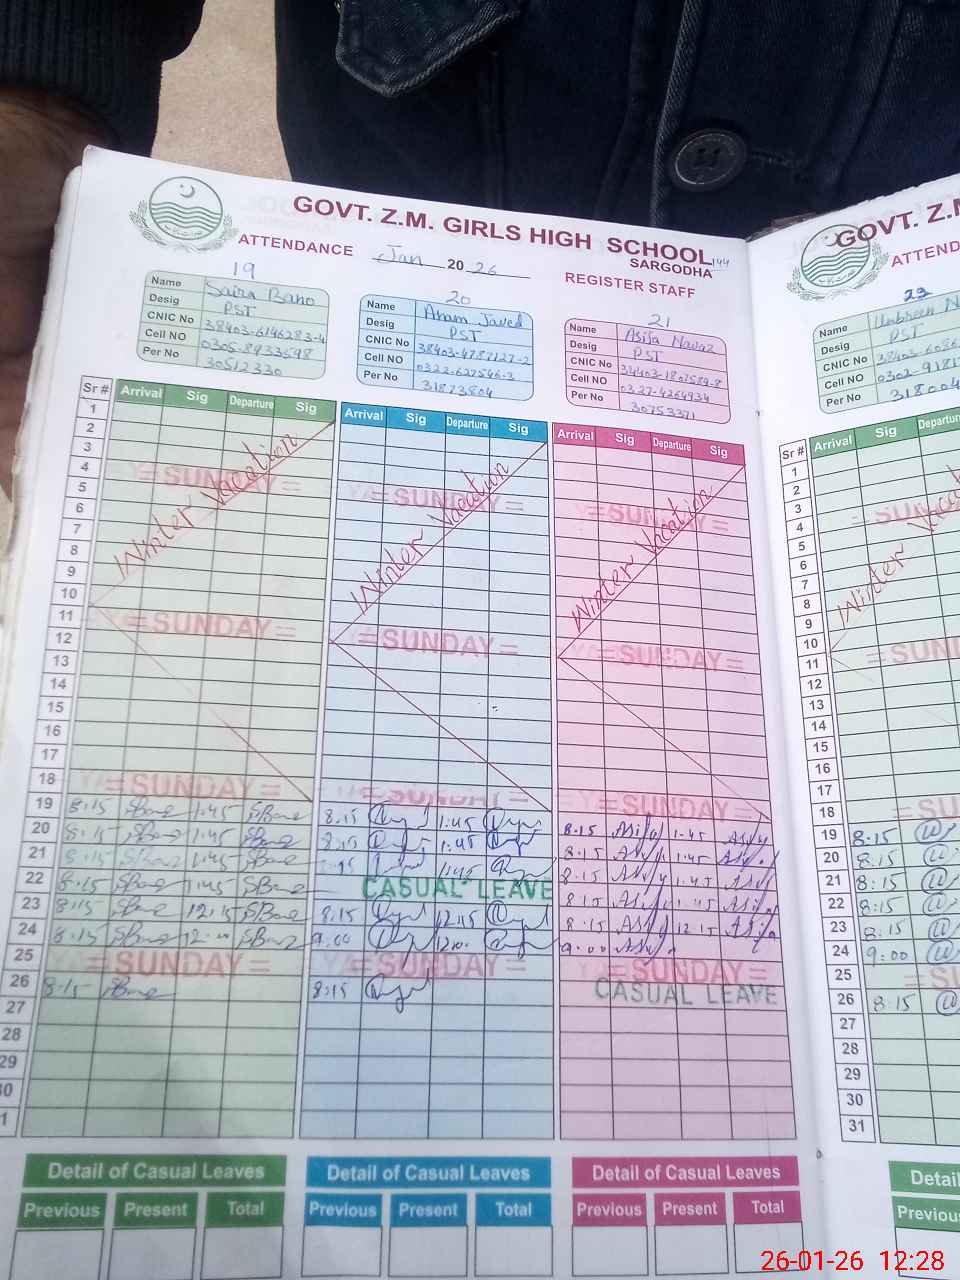 GOVT. Z.M. GIRLS HIGH SCHOOL
SARGODHA
144
ATTENDANCE Jan 2026
REGISTER STAFF
19
Name Saira Bano
Desig PST
CNIC No 38403-6146283-4
Cell NO 0305-8933598
Per No 30512330
20
Name Anam Javed
Desig PST
CNIC No 38403-4787127-2
Cell NO 0322-627546-3
Per No 31873804
21
Name Asifa Nawaz
Desig PST
CNIC No 34403-1807589-8
Cell NO 0327-4264934
Per No 30753371
Sr # Arrival Sig Departure Sig Arrival Sig Departure Sig Arrival Sig Departure Sig
1
2
3
4 =SUNDAY= =SUNDAY= =SUNDAY=
5
6
7
8
9
10
Winter Vacation Winter Vacation Winter Vacation
11 =SUNDAY= =SUNDAY= =SUNDAY=
12
13
14
15
16
17
18 =SUNDAY= =SUNDAY= =SUNDAY=
19 8:15 SBano 1:45 SBano 8:15 1:45 8:15 Asifa 1:45
20 8:15 SBano 1:45 SBano 8:15 1:45 8:15 1:45
21 8:15 SBano 1:45 SBano 8:15 1:45 8:15 1:45
22 8:15 SBano 1:45 SBano CASUAL LEAVE 8:15 1:45
23 8:15 SBano 12:15 SBano 8:15 12:15 8:15 12:15 Asifa
24 8:15 SBano 12:00 SBano 9:00 12:00 9:00
25 =SUNDAY= =SUNDAY= =SUNDAY=
26 8:15 SBano 8:15 CASUAL LEAVE
27
28
29
30
Detail of Casual Leaves Detail of Casual Leaves Detail of Casual Leaves
Previous Present Total Previous Present Total Previous Present Total
GOVT. Z.M
ATTEND
Name
Desig PST
CNIC No 38403-6086
Cell NO 0302-9181
Per No 318004
Sr # Arrival Sig Departure
1
2
3
4
5
6
7
8
9
10
Winter
11
12
13
14
15
16
17
18
19 8:15
20 8:15
21 8:15
22 8:15
23 8:15
24 9:00
25
26 8:15
27
28
29
30
31
Detail
Previous
26-01-26 12:28